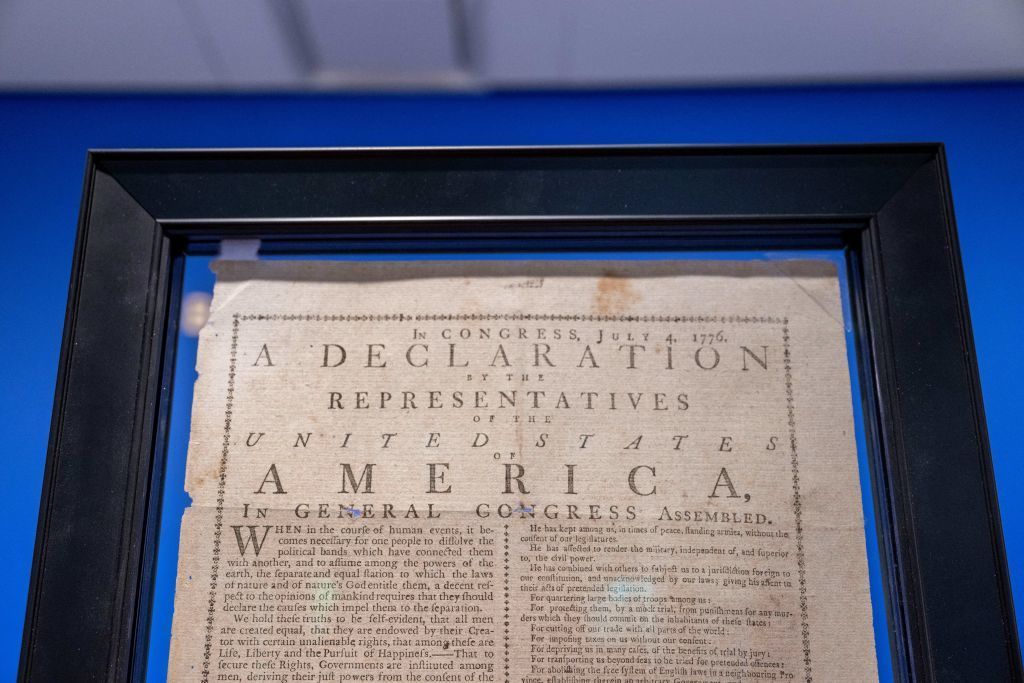 IN CONGRESS, JULY 4, 1776.
A DECLARATION
BY THE
REPRESENTATIVES
OF THE
UNITED STATES
OF
AMERICA,
IN GENERAL CONGRESS ASSEMBLED.
WHEN in the courſe of human events, it be-
comes neceſſary for one people to diſſolve the
political bands which have connected them
with another, and to aſſume among the powers of the
earth, the ſeparate and equal ſtation to which the laws
of nature and of nature's God entitle them, a decent reſ-
pect to the opinions of mankind requires that they ſhould
declare the cauſes which impel them to the ſeparation.
We hold theſe truths to be ſelf-evident, that all men
are created equal, that they are endowed by their Crea-
tor with certain unalienable rights, that among theſe are
Life, Liberty and the Purſuit of Happineſs.——That to
ſecure theſe Rights, Governments are inſtituted among
men, deriving their juſt powers from the conſent of the
He has kept among us, in times of peace, ſtanding armies, without the
conſent of our legiſlatures.
He has affected to render the military, independent of, and ſuperior
to, the civil power.
He has combined with others to ſubject us to a juriſdiction foreign to
our conſtitution, and unacknowledged by our laws; giving his aſſent to
their acts of pretended legiſlation.
For quartering large bodies of troops among us:
For protecting them, by a mock trial, from puniſhment for any mur-
ders which they ſhould commit on the inhabitants of theſe ſtates:
For cutting off our trade with all parts of the world:
For impoſing taxes on us without our conſent:
For depriving us in many caſes, of the benefits of trial by jury:
For tranſporting us beyond ſeas to be tried for pretended offences:
For aboliſhing the free ſyſtem of Engliſh laws in a neighbouring Pro
vince, eſtabliſhing therein an arbitrary